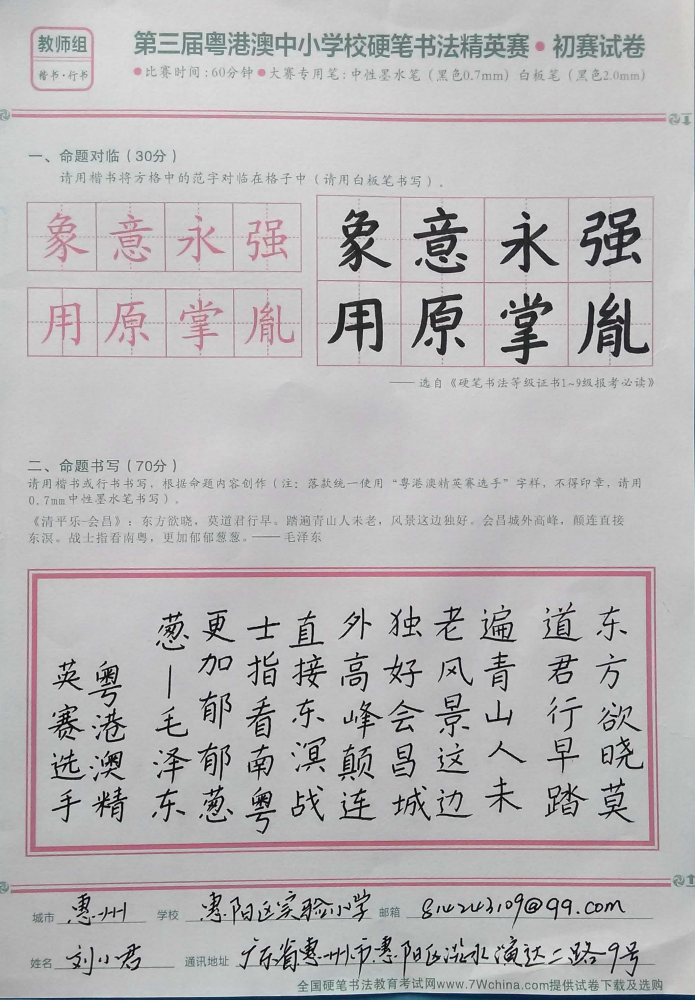 教师组
楷书·行书
第三届粤港澳中小学校硬笔书法精英赛·初赛试卷
●比赛时间:60分钟●大赛专用笔:中性墨水笔(黑色0.7mm) 白板笔(黑色2.0mm)
一、命题对临(30分)
请用楷书将方格中的范字对临在格子中(请用白板笔书写).
象意永强
用原掌胤
象意永强
用原掌胤
——选自《硬笔书法等级证书1~9级报考必读》
二、命题书写(70分)
请用楷书或行书书写,根据命题内容创作(注:落款统一使用“粤港澳精英赛选手”字样,不得印章,请用
0.7mm中性墨水笔书写).
《清平乐-会昌》:东方欲晓,莫道君行早。踏遍青山人未老,风景这边独好。会昌城外高峰,颠连直接
东溟。战士指看南粤,更加郁郁葱葱。——毛泽东
东方欲晓莫
道君行早踏
遍青山人未
老风景这边
独好会昌城
外高峰颠连
直接东溟战
士指看南粤
更加郁郁葱
葱—毛泽东
粤港澳精
英赛选手
城市 惠州 学校 惠阳区实验小学 邮箱 814243109@qq.com
姓名 刘小君 通讯地址 广东省惠州市惠阳区淡水演达二路9号
全国硬笔书法教育考试网www.7Wchina.com提供试卷下载及选购